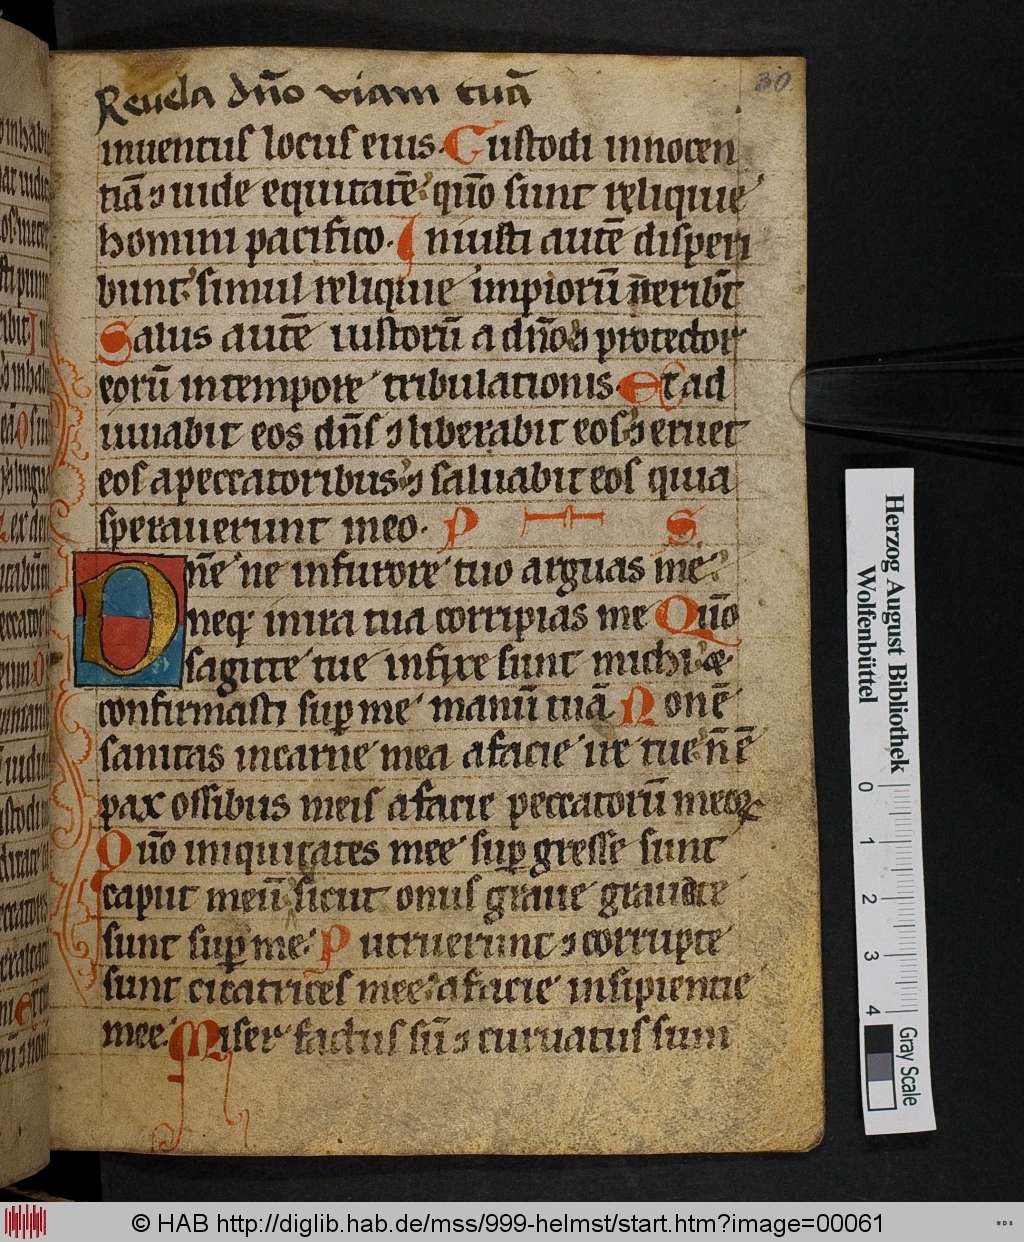 30
Reuela dño viam tuā
inuentus locus eius. Custodi innocen
tiā ⁊ uide equitatē quō sunt reliquie
homini pacifico. Iniusti autē disperi
bunt simul reliquie impiorū īteribūt
Salus autē iustorū a dño ⁊ protector
eorū in tempore tribulationis. Et ad
iuuabit eos dñs ⁊ liberabit eos ⁊ eruet
eos a peccatoribus ⁊ saluabit eos quia
sperauerunt in eo. P S
Dñe ne in furore tuo arguas me
neq; in ira tua corripias me Qūo
sagitte tue infixe sunt michi ⁊
confirmasti suꝑ me manū tuā Non ē
sanitas in carne mea a facie ire tue ñ ē
pax ossibus meis a facie peccatorū meoꝝ
Qūo iniquitates mee suꝑgresse sunt
caput meū sicut onus graue grauate
sunt suꝑ me. Putruerunt ⁊ corrupte
sunt cicatrices mee a facie insipientie
mee. Miser factus sū ⁊ curuatus sum
Herzog August Bibliothek
Wolfenbüttel
0 1 2 3 4
Gray Scale
© HAB http://diglib.hab.de/mss/999-helmst/start.htm?image=00061